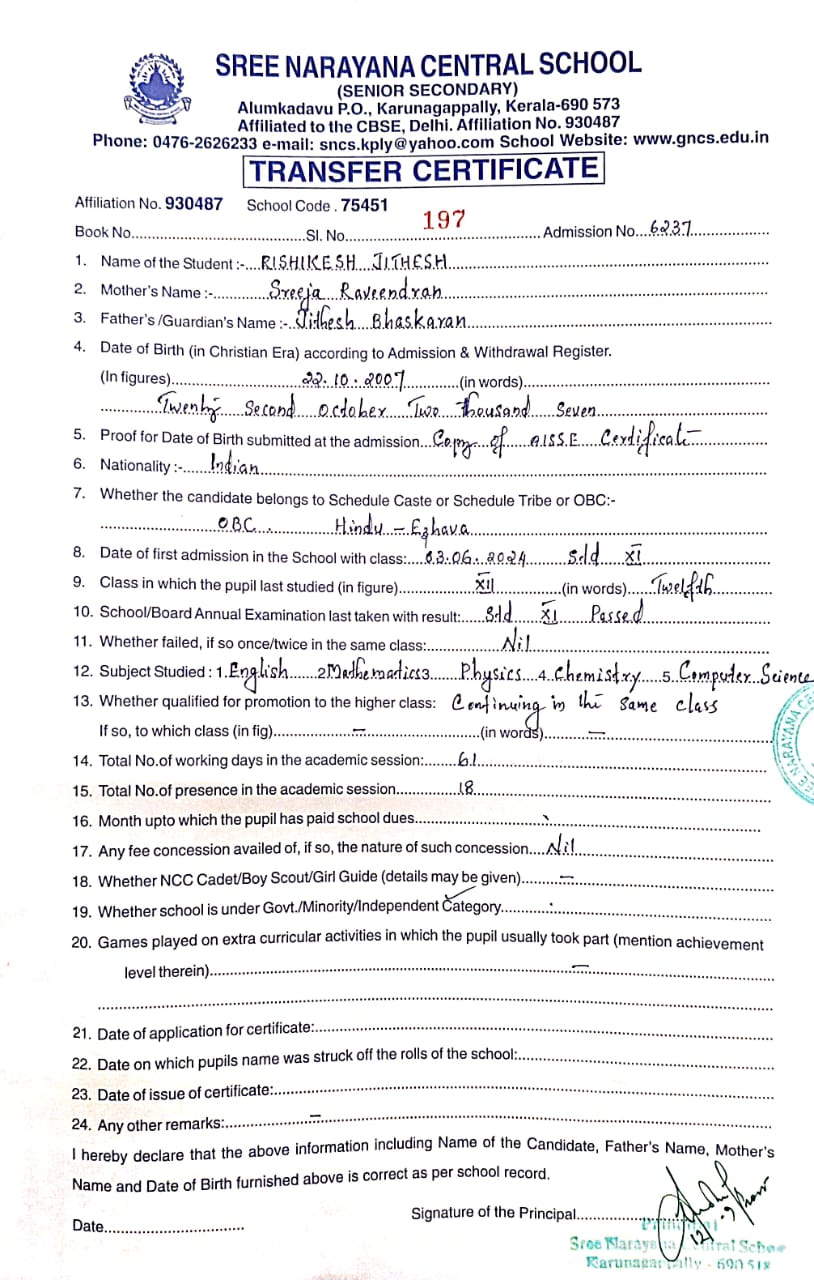 SREE NARAYANA CENTRAL SCHOOL
(SENIOR SECONDARY)
Alumkadavu P.O., Karunagappally, Kerala-690 573
Affiliated to the CBSE, Delhi. Affiliation No. 930487
Phone: 0476-2626233 e-mail: sncs.kply@yahoo.com School Website: www.gncs.edu.in
TRANSFER CERTIFICATE
Affiliation No. 930487 School Code . 75451
Book No. Sl. No. 197 Admission No. 6237
1. Name of the Student :- RISHIKESH JITHESH
2. Mother's Name :- Sreeja Raveendran
3. Father's /Guardian's Name :- Jithesh Bhaskaran
4. Date of Birth (in Christian Era) according to Admission & Withdrawal Register.
(In figures) 22.10.2007 (in words)
Twenty Second October Two Thousand Seven
5. Proof for Date of Birth submitted at the admission Copy of AISSE Certificate
6. Nationality :- Indian
7. Whether the candidate belongs to Schedule Caste or Schedule Tribe or OBC:-
OBC. Hindu - Ezhava
8. Date of first admission in the School with class: 03.06.2024 Std XI
9. Class in which the pupil last studied (in figure) XII (in words) Twelfth
10. School/Board Annual Examination last taken with result: Std XI Passed
11. Whether failed, if so once/twice in the same class: Nil
12. Subject Studied : 1. English 2 Mathematics 3 Physics 4 Chemistry 5 Computer Science
13. Whether qualified for promotion to the higher class: Continuing in the same class
If so, to which class (in fig) — (in words) —
14. Total No.of working days in the academic session: 61
15. Total No.of presence in the academic session 18
16. Month upto which the pupil has paid school dues
17. Any fee concession availed of, if so, the nature of such concession Nil
18. Whether NCC Cadet/Boy Scout/Girl Guide (details may be given) —
19. Whether school is under Govt./Minority/Independent Category
20. Games played on extra curricular activities in which the pupil usually took part (mention achievement
level therein) —
21. Date of application for certificate:
22. Date on which pupils name was struck off the rolls of the school:
23. Date of issue of certificate:
24. Any other remarks: —
I hereby declare that the above information including Name of the Candidate, Father's Name, Mother's
Name and Date of Birth furnished above is correct as per school record.
Date
Signature of the Principal
Principal
Sree Narayana Central School
Karunagappally - 690 518